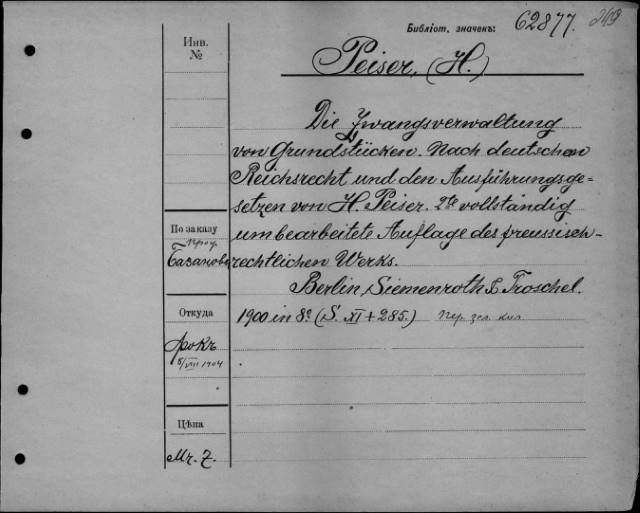 Библіот. значекъ: 62877. 249
Инв.
№
Peiser, (H.)
Die Zwangsverwaltung
von Grundstücken. Nach deutschen
Reichsrecht und den Ausführungsge-
setzen von H. Peiser. 2te vollständig
По заказу
проф.
Базанова
umbearbeitete Auflage des preussisch-
rechtlichen Werks.
Berlin, Siemenroth & Troschel.
Откуда
1900 in 8º (S. XI + 285.) пер. зел. кол.
Фокъ
8/VIII 1904
Цѣна
Mr. 7.